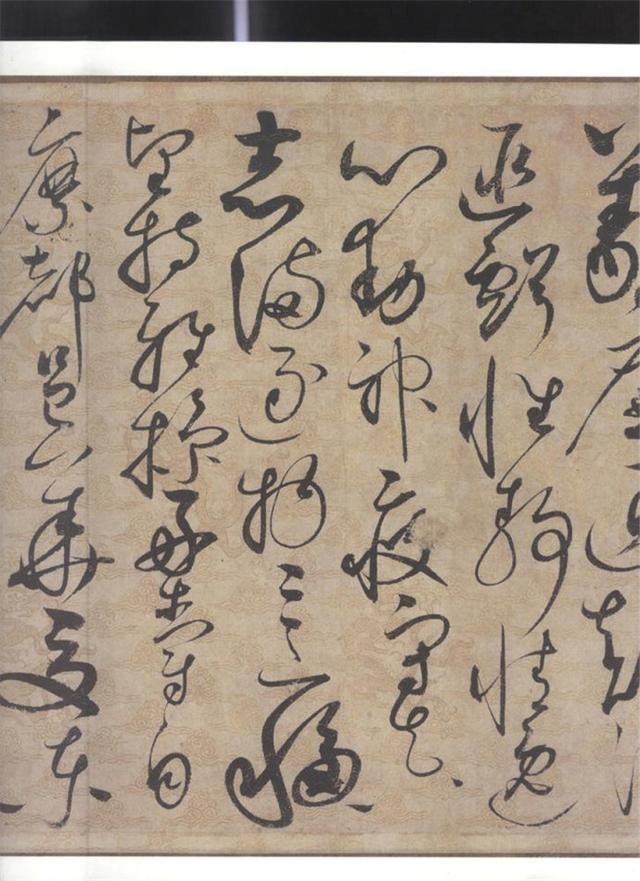 義廉退顛沛
匪虧性靜情逸
心動神疲守真
志滿逐物意移
堅持雅操好爵自
縻都邑華夏東